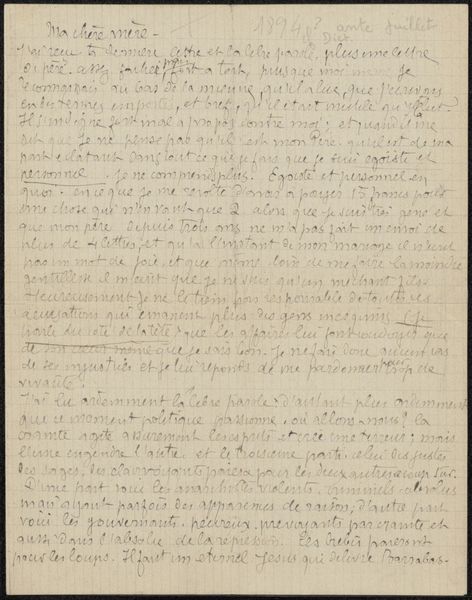 Ma chère mère - 1894? ante Juillet
J'ai reçu ta dernière lettre et la libre parole, plus une lettre
du père assez fachée fort a tort, puisque moi même je
au bas de la mienne, qu'il a lue, que j'écrivais
en des termes emportés, et bref, qu'il etait inutile qu'il
Il s'indigne fort mal a propos contre moi; et quand il me
dit que je ne pense pas qu'il est mon Père, qu'il est de ma
part éclatant dans tout ce que je fais que je suis egoïste et
personnel. Je ne comprends plus. Egoïste et personnel en
quoi - en ce que je me revolte d'avoir a payer 15 francs pour
une chose qui n'en vaut que 2 alors que je suis très gené et
que mon père depuis trois ans ne m'a pas fait un envoi de
plus de 4 lettres, et qu'a l'instant de mon mariage il n'écrit
pas un mot de joie, et que même loin de me faire la moindre
gentillesse il m'écrit que je ne suis qu'un méchant fils.
Heureusement je ne le tiens pas responsable de toutes ces
accusations qui émanent plus des gens mesquins (je
parle du côté de la tête) que les affaires lui font
de son cœur même que je sais bon. Je ne fais donc aucun cas
de ses injustices et je lui reponds de me pardonner trop de
vivacité.
J'ai lu ardemment la libre parole; d'autant plus ardemment
que ce moment politique passionne, où allons-nous? la
crainte agite assurement les esprits et crée une terreur; mais
l'une engendre l'autre, et le troisieme parti, celui des justes
des sages, des clairvoyants paiera pour les deux autres a coup sur.
D'une part voici les anarchistes violents, criminels absolus
mais ayant parfois des apparences de raison; d'autre part
voici les gouvernants, peureux, prevoyants par crainte et
aussi dans l'absolu de la répression. Les brebis paieront
pour les loups. Il faut un eternel Jesus qui delivre Barrabas-